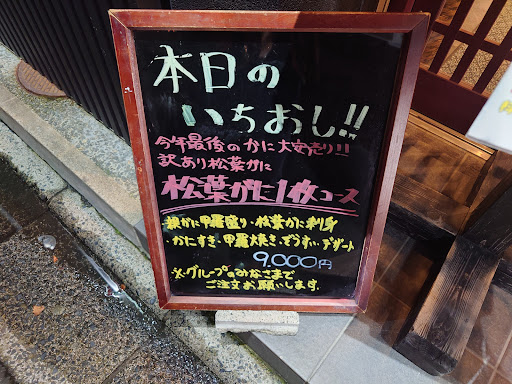 本日の
いちおし!!
今年最後のかに大安売り!!
訳あり松葉がに
松葉がに1枚コース
親がに甲羅盛り・松葉がに刺身
・かにすき・甲羅焼き・ぞうすい・デザート
9.000円
※グループのみなさまで
ご注文お願いします。